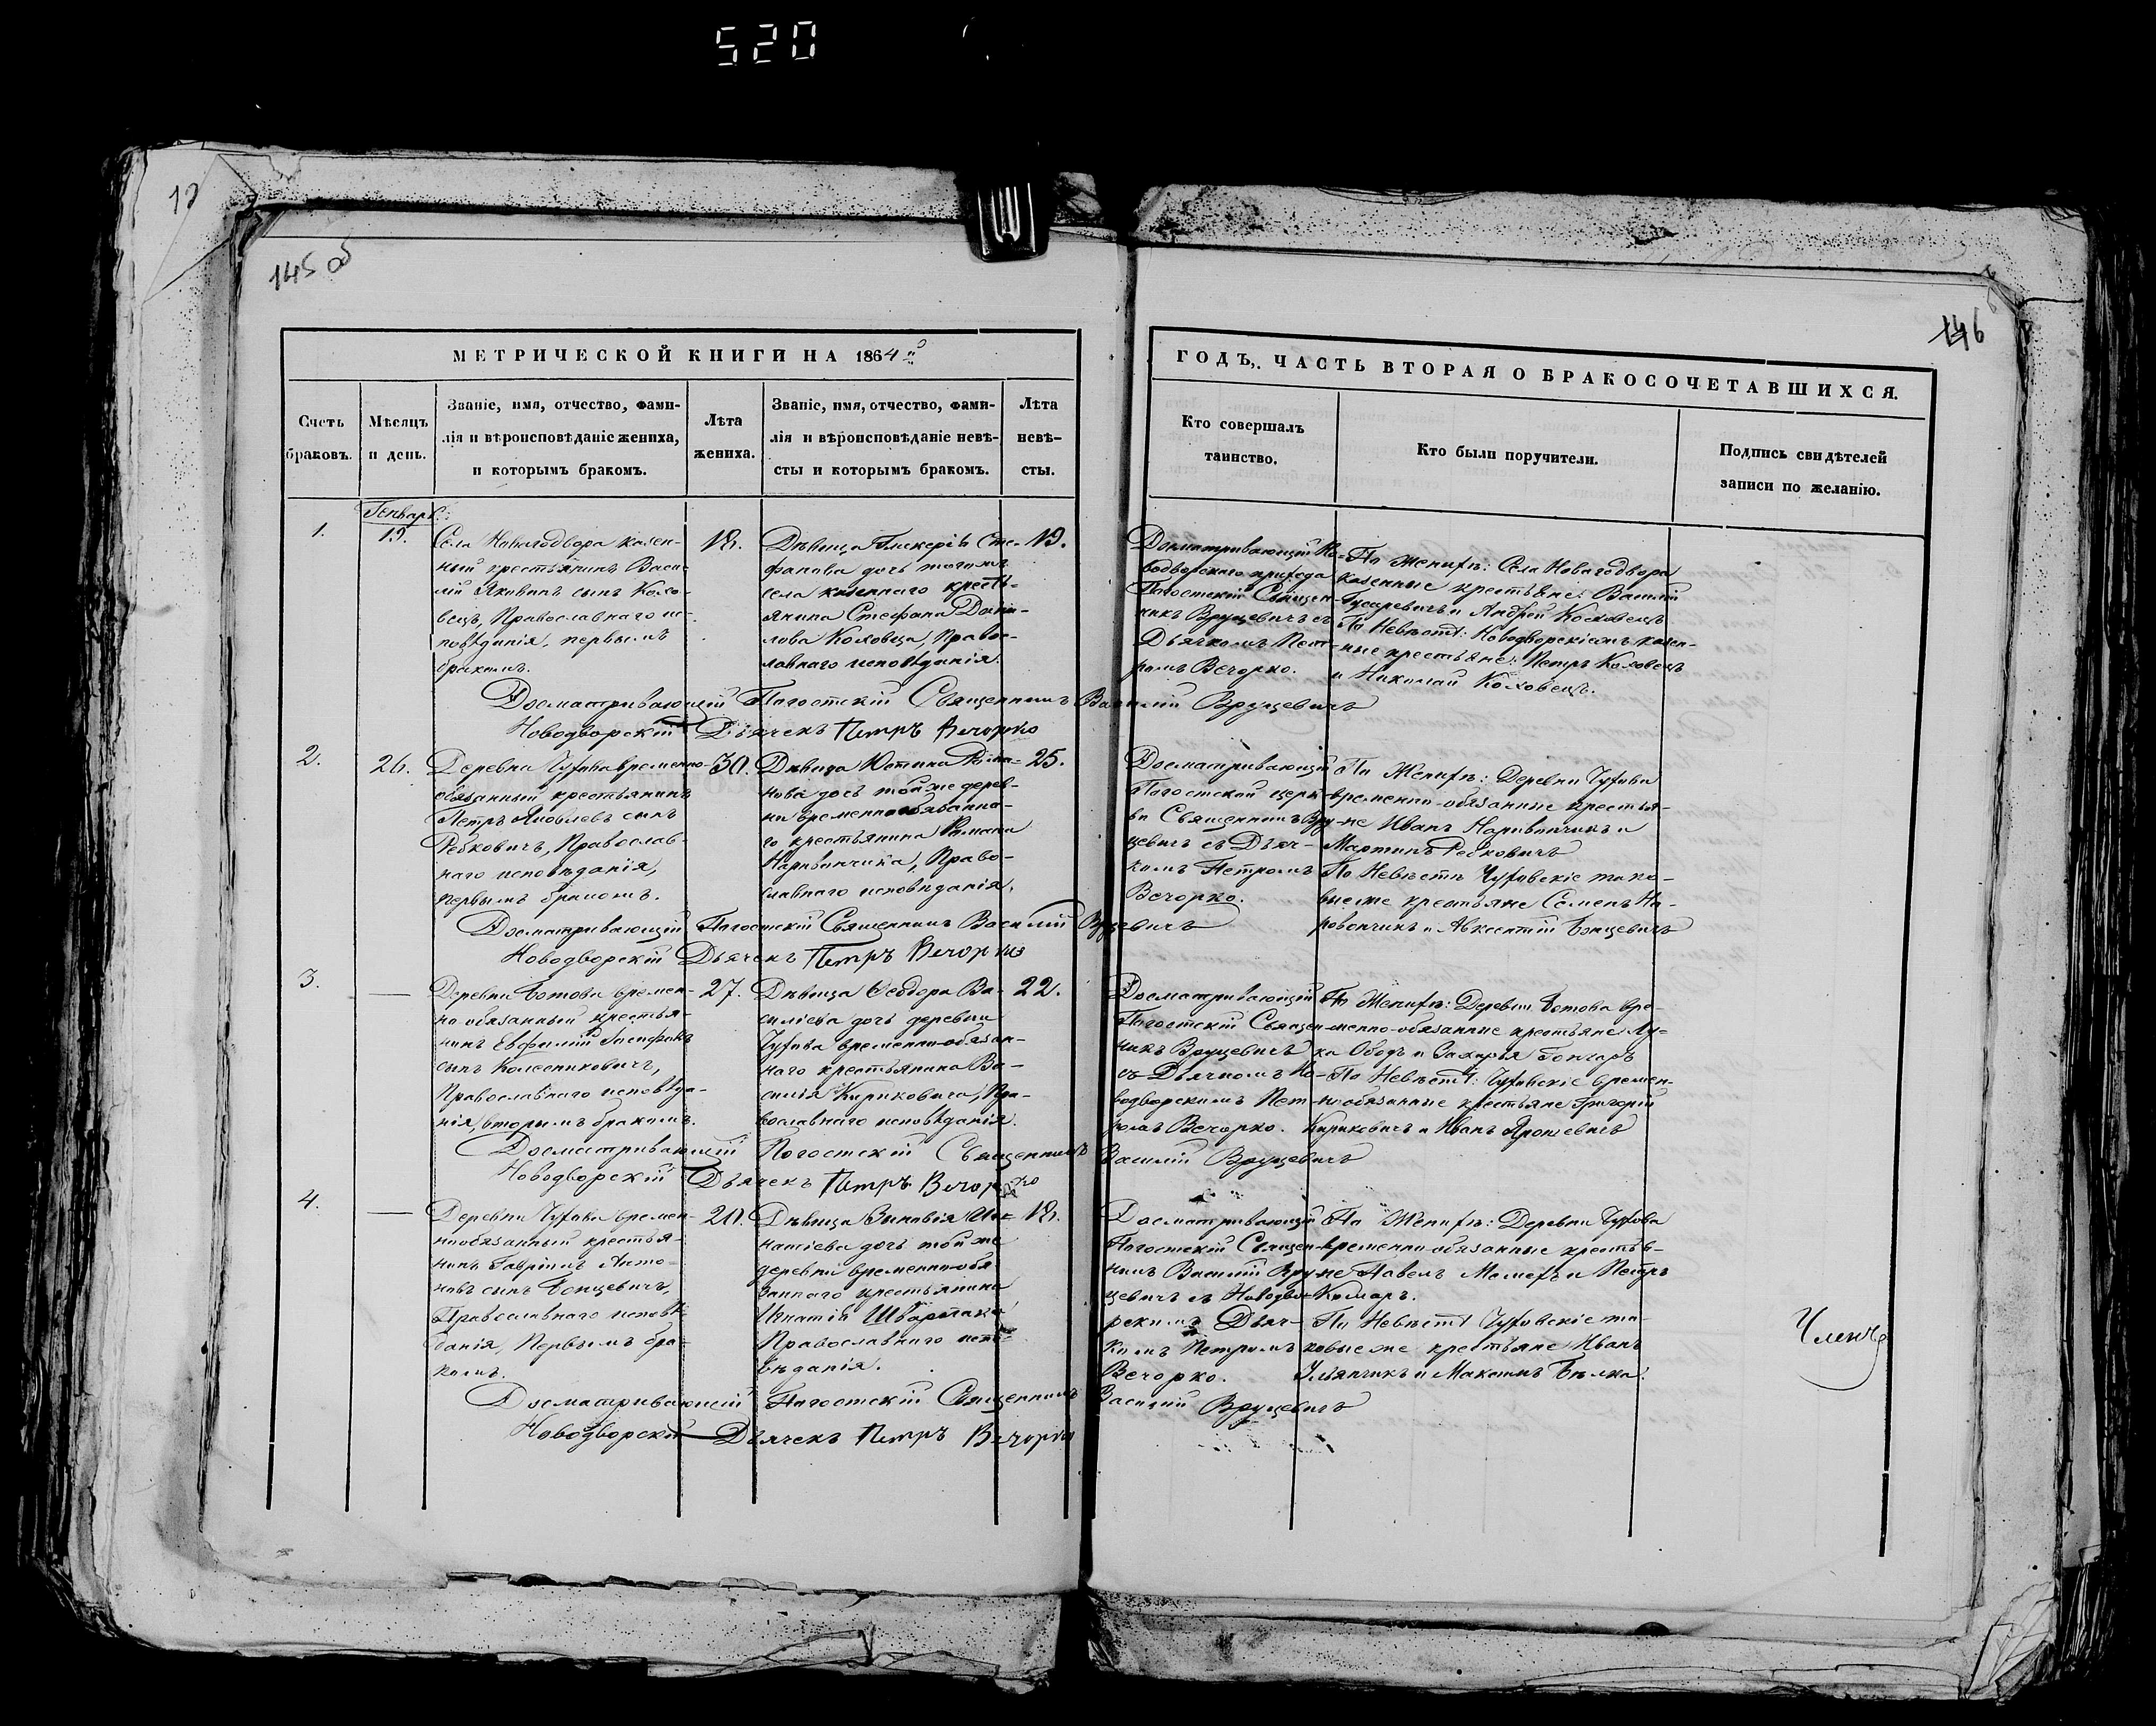 520
12
145 об
146
МЕТРИЧЕСКОЙ КНИГИ НА 1864й
ГОДЪ, ЧАСТЬ ВТОРАЯ О БРАКОСОЧЕТАВШИХСЯ.
Счетъ браковъ.
Мѣсяцъ и день.
Званіе, имя, отчество, фами-
лія и вѣроисповѣданіе жениха,
и которымъ бракомъ.
Лѣта
жениха.
Званіе, имя, отчество, фами-
лія и вѣроисповѣданіе невѣ-
сты и которымъ бракомъ.
Лѣта
невѣ-
сты.
Кто совершалъ
таинство.
Кто были поручители.
Подпись свидѣтелей
записи по желанію.
Генварь.
1.
19.
Села Новагодвора казен-
ный крестьянинъ Васи-
лій Яковивъ сынъ Коло-
вецъ, Православнаго ис-
повѣданія, первымъ
бракомъ.
18.
Дѣвица Гликерія Сте-
фанова дочь тогожъ
села казеннаго кресть-
янина Стефана Дани-
лова Коловеца, Правос-
лавнаго исповѣданія.
19.
Досматривающій Но-
водворскаго прихода
Погостскій Священ-
никъ Вруцевичъ съ
Дьячкомъ Пет-
ромъ Вечорко.
По Женихѣ: Села Новагодвора
казенные крестьяне: Василій
Гусаревичъ и Андрей Коловецъ
По Невѣстѣ: Новодворскіежъ казен-
ные крестьяне: Петръ Коловецъ
и Николай Коловецъ.
Досматривающій Погостскій Священникъ Василій Вруцевичъ
Новодворскій Дьячекъ Петръ Вечорко
2.
26.
Деревни Чухова временно-
обязанный крестьянинъ
Петръ Яковлевъ сынъ
Ребковичъ, Православ-
наго исповѣданія,
первымъ бракомъ.
30.
Дѣвица Юстина Рома-
нова дочь той же дерев-
ни временнообязанна-
го крестьянина Романа
Наривончика, Право-
славнаго исповѣданія.
25.
Досматривающій
Погостской церк-
ви Священникъ Вру-
цевичъ съ Дьяч-
комъ Петромъ
Вечорко.
По Женихѣ: Деревни Чухова
временно-обязанные крестья-
не Иванъ Наривончикъ и
Мартинъ Ребковичъ
По Невѣстѣ Чуховскіе тако-
выеже крестьяне Семенъ На-
ровончикъ и Авксентій Бонцевичъ
Досматривающій Погостскій Священникъ Василій Вруцевичъ
Новодворскій Дьячекъ Петръ Вечорко
3.
—
Деревни Ботова времен-
но обязанный крестья-
нинъ Евфимій
сынъ Колесниковичъ,
Православнаго исповѣда-
нія, вторымъ бракомъ.
27.
Дѣвица Ѳеодора Ва-
силіева дочь деревни
Чухова временно-обязан-
наго крестьянина Ва-
силія Кириковича, Пра-
вославнаго исповѣданія.
22.
Досматривающій
Погостскій Священ-
никъ Вруцевичъ
съ Дьячкомъ Но-
водворскимъ Пет-
ромъ Вечорко.
По Женихѣ: Деревни Ботова вре-
менно-обязанные крестьяне Лу-
ка Ободъ и Захарія Гончаръ
По Невѣстѣ: Чуховскіе времен-
нообязанные крестьяне Григорій
Кириковичъ и Иванъ Ярошевичъ
Досматривающій Погостскій Священникъ Василій Вруцевичъ
Новодворскій Дьячекъ Петръ Вечорко
4.
—
Деревни Чухова времен-
нообязанный крестья-
нинъ Гавріилъ Анто-
новъ сынъ Бонцевичъ,
Православнаго исповѣ-
данія, Первымъ бра-
комъ.
20.
Дѣвица Зиновія Иг-
натіева дочь той же
деревни временнообя-
заннаго крестьянина
Игнатія Шворака
Православнаго испо-
вѣданія.
18.
Досматривающій
Погостскій Священ-
никъ Василій Вру-
цевичъ съ Новодво-
рскимъ Дьяч-
комъ Петромъ
Вечорко.
По Женихѣ: Деревни Чухова
временно-обязанные крестья-
не Павелъ Мелехъ и Петръ
Комаръ.
По Невѣстѣ Чуховскіе та-
ковыеже крестьяне Иванъ
Ульянчикъ и Макимъ Бѣлка.
Досматривающій Погостскій Священникъ Василій Вруцевичъ
Новодворскій Дьячекъ Петръ Вечорко
Членъ